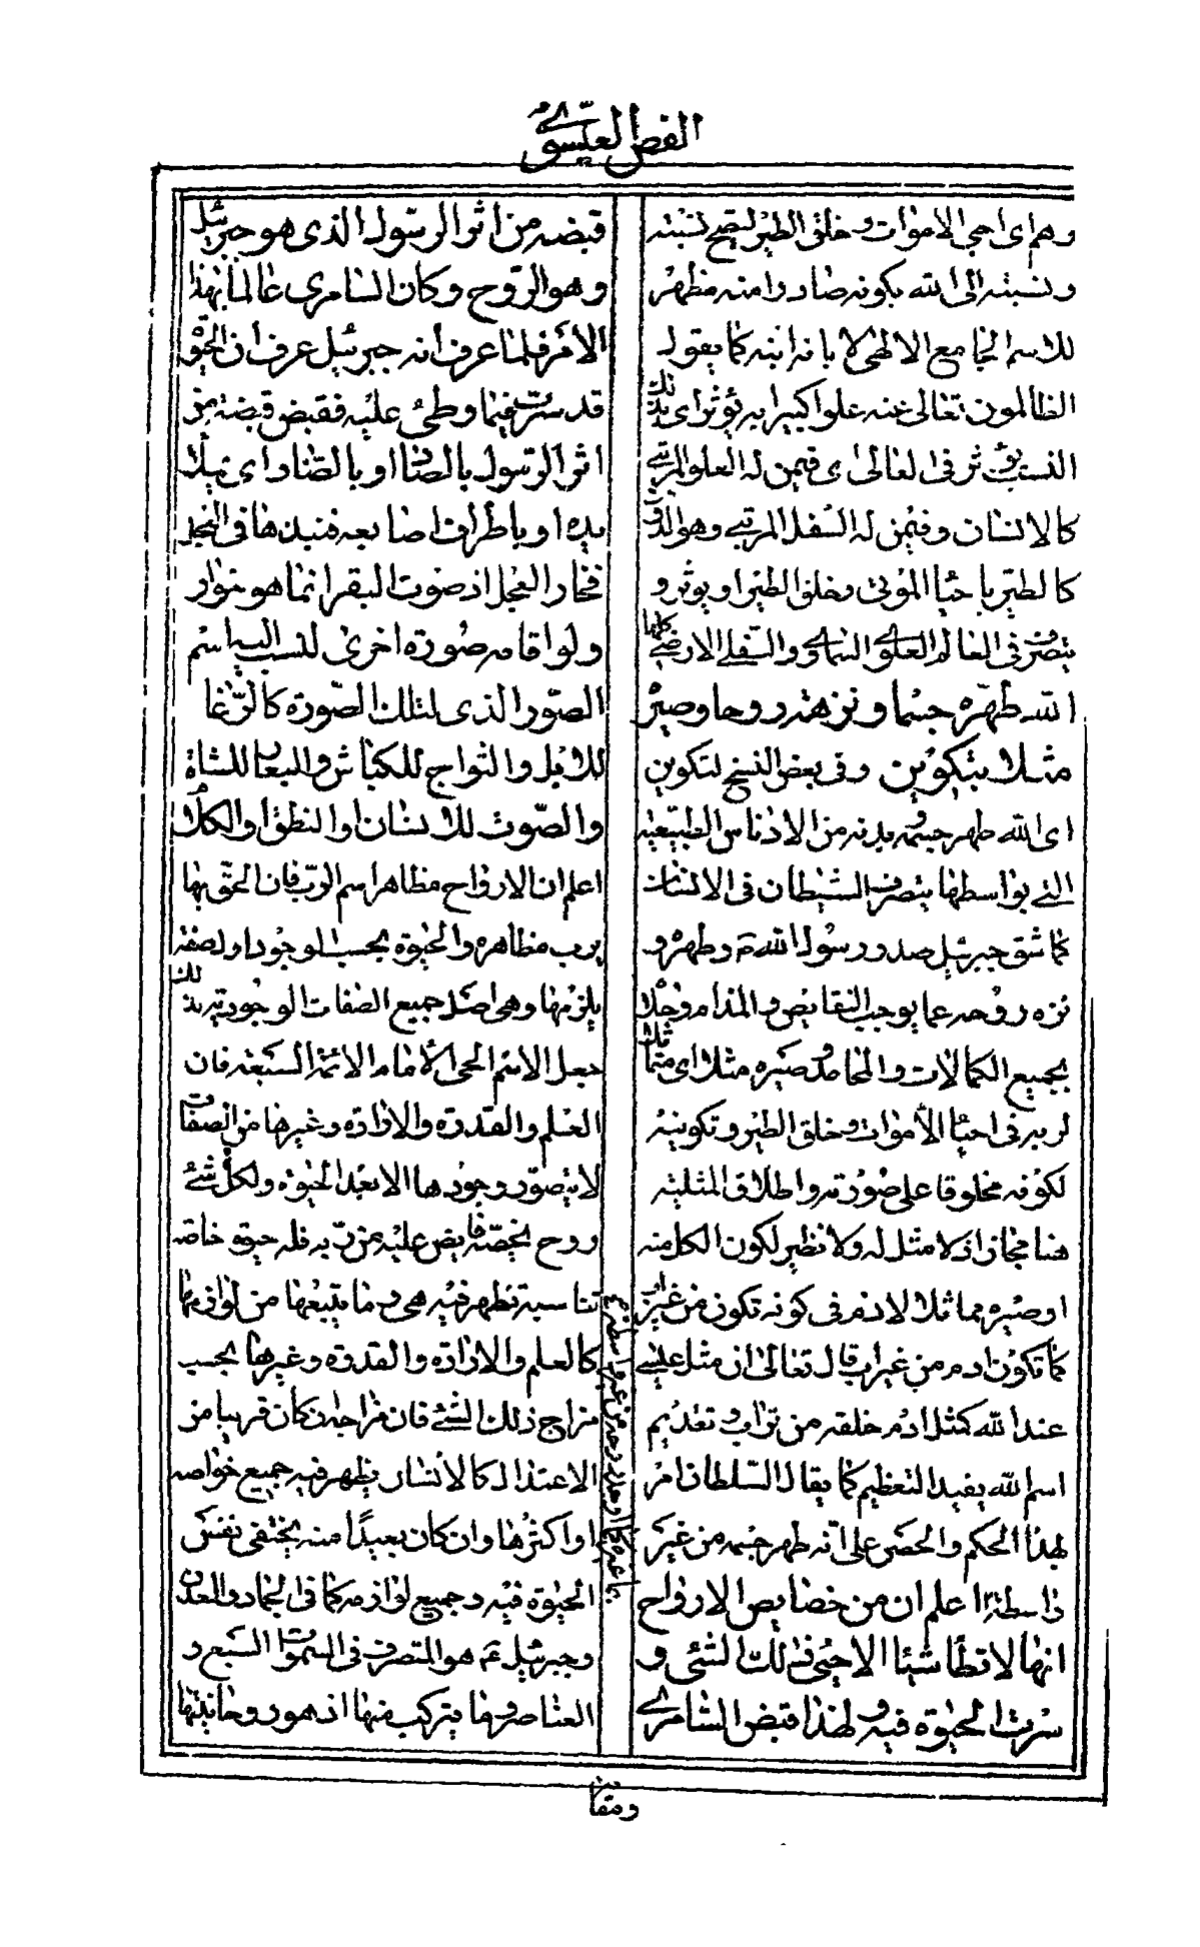 الفص العيسوي
وهم اى احيى الاموات وخلق الطير ليصح نسبته
ونسبته الى الله بكونه صادرا منه مظهر
للاسم الجامع الالهى لا بانه ابنه كما يقول
الظالمون تعالى عنه علوا كبيرا به يؤثر اى بذلك
النسب يؤثر فى العالى اى فيمن له العلو المرتبى
كالانسان وفيمن له السفل المرتبى وهو الدون
كالطير باحياء الموتى وخلق الطير او يؤثر و
يتصرف فى العالم العلوى السماوى والسفلى الارضى كلها
الله طهره جسما ونزهه روحا وصيره
مثلا بتكوين وفى بعض النسخ لتكوين
اى الله طهر جسمه وبدنه من الادناس الطبيعية
التى بواسطتها يتصرف الشيطان فى الانسان
كما شق جبرئيل صدر رسول الله ص وطهره و
نزه روحه عما يوجب النقايص والمذام وحلاه
بجميع الكمالات والمحامد وصيره مثلا اى مماثلا
لربه فى احياء الاموات وخلق الطير وتكوينه
لكونه مخلوقا على صورته واطلاق المثلية
هنا مجاز اذ لا مثل له ولا نظير لكون الكل منه
او صيره مماثلا لادم فى كونه تكون من غير اب
كما تكون ادم من غير اب قال تعالى ان مثل عيسى
عند الله كمثل ادم خلقه من تراب وتقديم
اسم الله يفيد التعظيم كما يقال السلطان امر
بهذا الحكم والحصر على انه طهر جسمه من غير
واسطة اعلم ان من خصايص الارواح
انها لا تطأ شيئا الا حيى ذلك الشئ و
سرت الحيوة فيه ولهذا قبض السامرى
قبضة من اثر الرسول الذى هو جبرئيل
وهو الروح وكان السامرى عالما بهذا
الامر فلما عرف انه جبرئيل عرف ان الحيوة
قد سرت فيما وطئ عليه فقبض قبضة من
اثر الرسول بالضاد او بالصاد اى بملأ
يده او باطراف اصابعه فنبذها فى العجل
فخار العجل اذ صوت البقر انما هو خوار
ولو اقامه صورة اخرى لنسب اليه اسم
الصور الذى لتلك الصورة كالرغا
للابل والثواج للكباش واليعار للشاة
والصوت للانسان او النطق او الكلام
اعلم ان الارواح مظاهر اسم الرب فان الحق بها
يرب مظاهره والحيوة بحسب الوجود اول صفة
يلزمها وهى اصل جميع الصفات الوجودية لذلك
جعل الاسم الحى الأمام الائمة السبعة فان
العلم والقدرة والارادة وغيرها من الصفات
لا يتصور وجودها الا بعد الحيوة ولكل شئ
روح يخصه فايض عليه من ربه فله حيوة خاصة
تناسبه تظهر فيه هى وما يتبعها من لوازمها
كالعلم والارادة والقدرة وغيرها بحسب
مزاج ذلك الشئ فان مزاجه ان كان قريبا من
الاعتدال كالانسان يظهر فيه جميع خواصه
او اكثرها وان كان بعيدا منه يختفى نفس
الحيوة فيه وجميع لوازمه كما فى الجماد والمعدن
وجبرئيل ع هو المتصرف فى السموات السبع و
العناصر وما يتركب منها اذ هو روحانيتها
ومقام